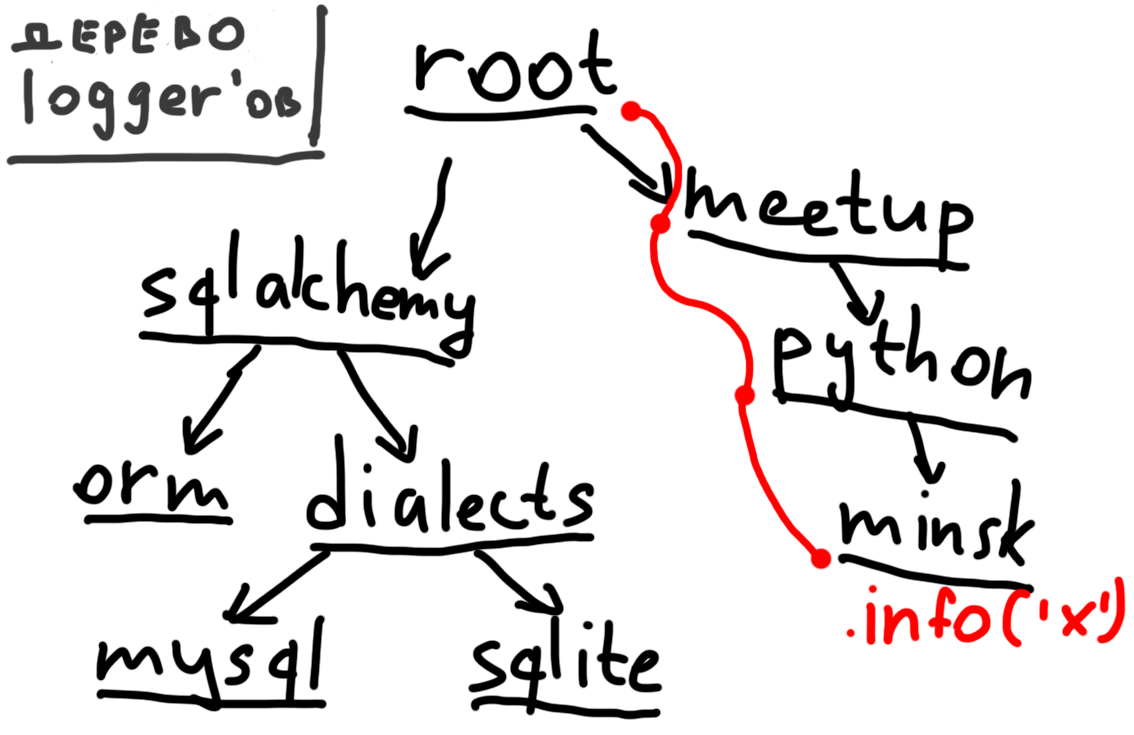 ДЕРЕВО
logger'ов
root
meetup
sqlalchemy
python
orm
dialects
minsk
.info('x')
mysql
sqlite